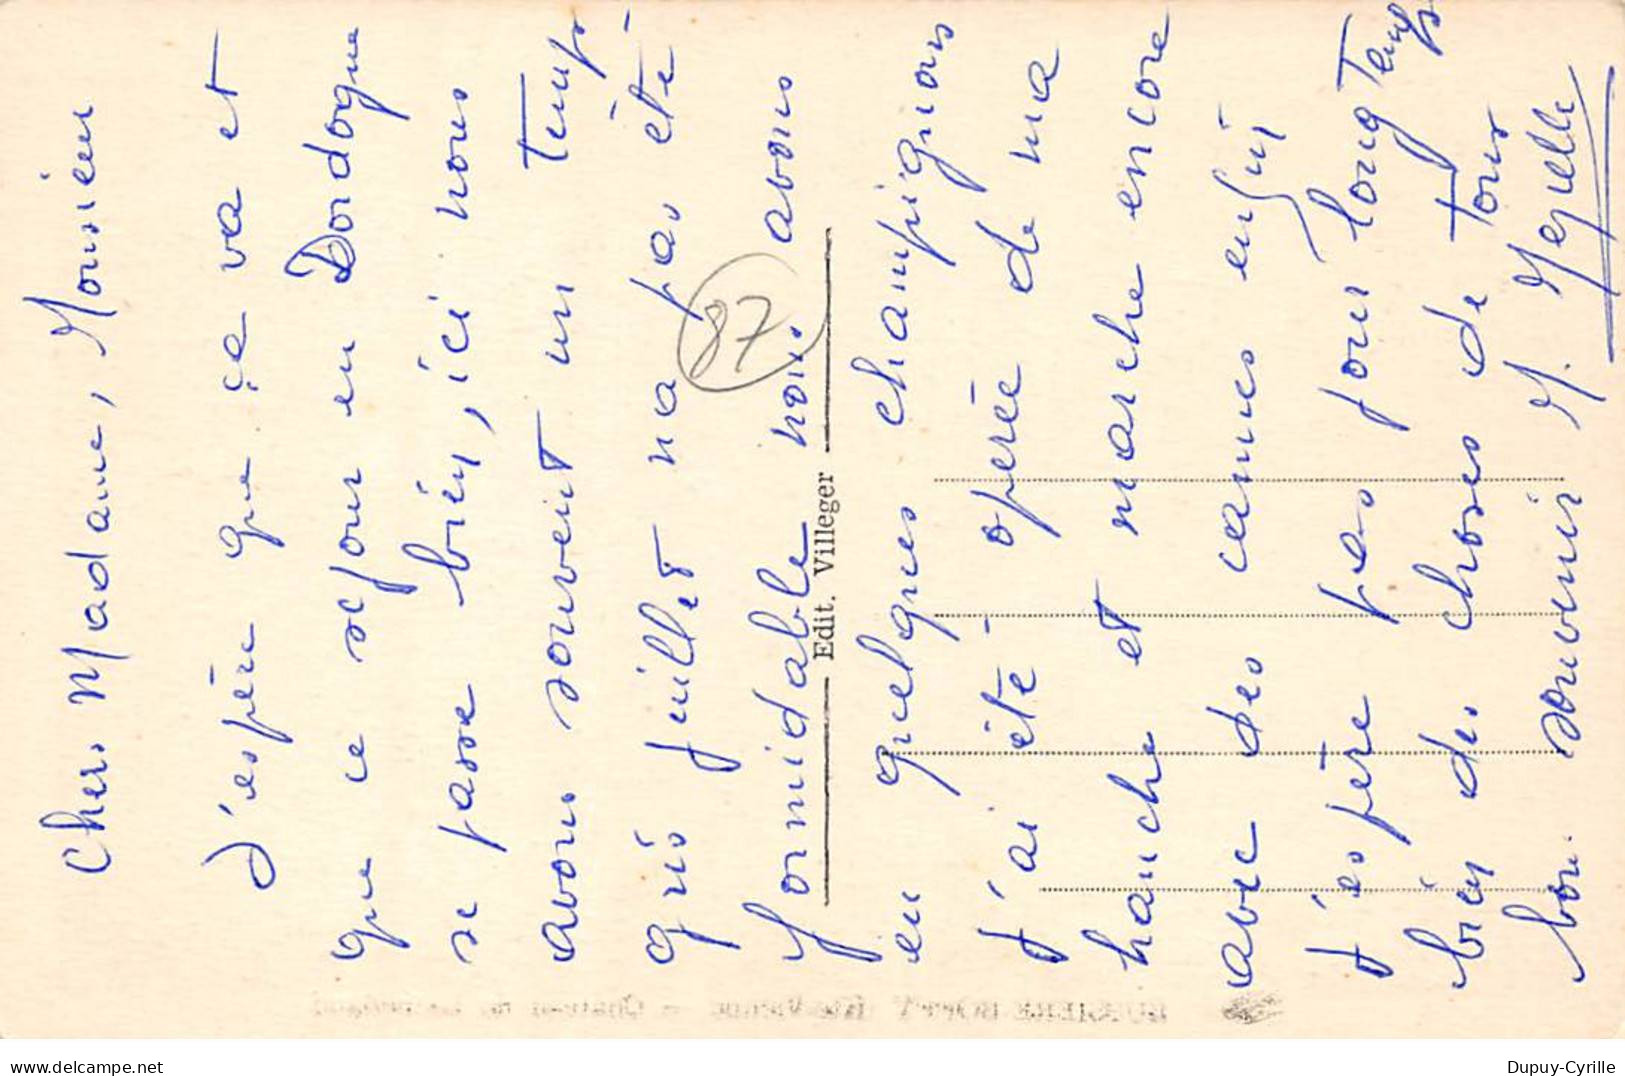 Chers Madame, Monsieur
J'espère que ça va et
que ce séjour en Dordogne
se passe bien, ici nous
avons souvent un temps
gris juillet na pas été
formidable nous avons
en quelques champignons
J'ai été opérée de ma
hanche et marche encore
avec des cannes enfin
J'espère pas pour longtemps
bien des choses de tous
bon souvenir M.
87
Edit. Villeger
BUSSIERE BOFFY (Hte Vienne) - Château de
www.delcampe.net
Dupuy-Cyrille